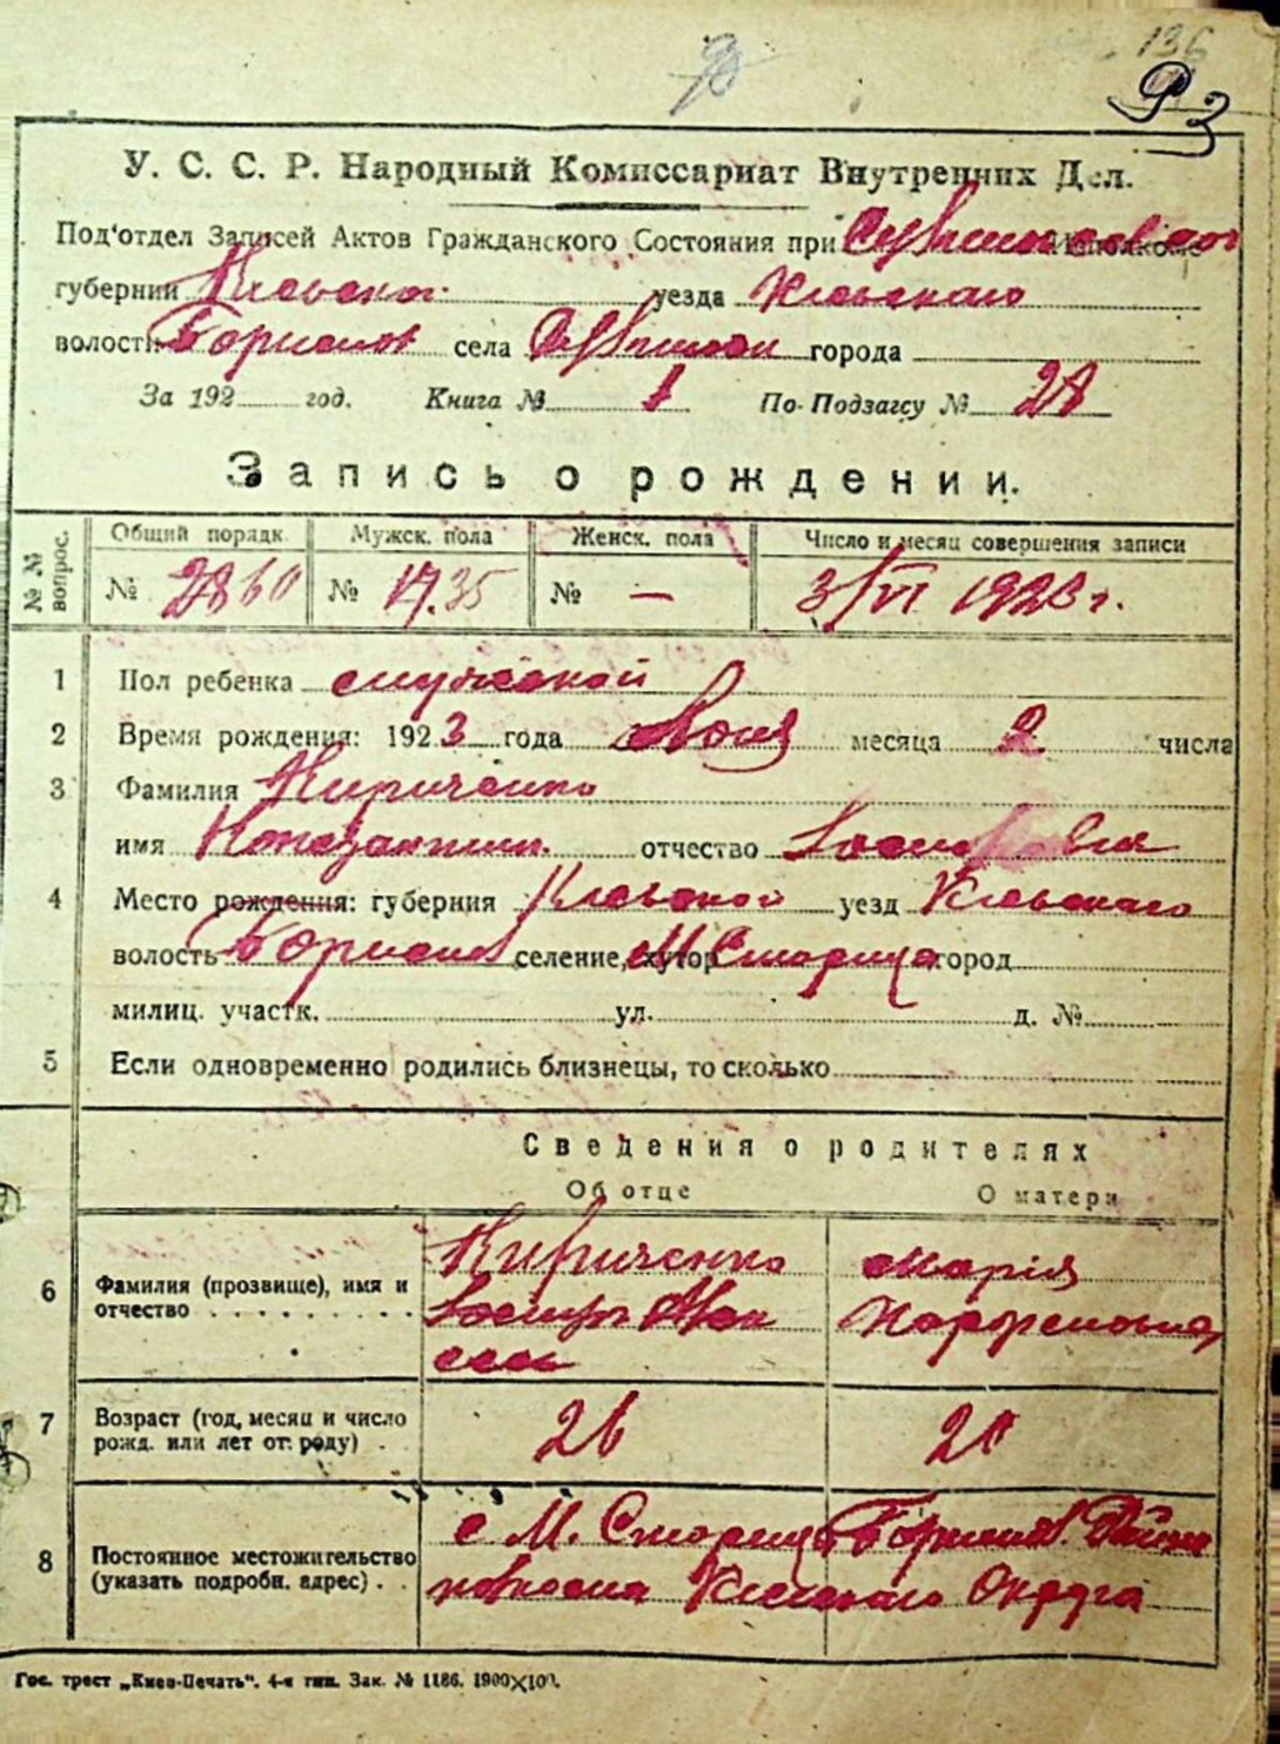 136
У. С. С. Р. Народный Комиссариат Внутренних Дел.
Под'отдел Записей Актов Гражданского Состояния при Исполкоме
губернии Киевской уезда Киевского
волости Борисп села города
За 192 год. Книга № 1 По-Подзагсу № 28
Запись о рождении.
№ № вопрос.
Общий порядк. Мужск. пола Женск. пола Число и месяц совершения записи
№ 2860 № 17.35 № — 3/VI 1923 г.
1 Пол ребенка мужской
2 Время рождения: 1923 года Июня месяца 2 числа
3 Фамилия Кириченко
имя Константин отчество Иосипович
4 Место рождения: губерния Киевской уезд Киевского
волость Борисп селение, хутор М Старица город
милиц. участк. ул. д. №
5 Если одновременно родились близнецы, то сколько
Сведения о родителях
Об отце О матери
6 Фамилия (прозвище), имя и отчество Кириченко Иосип Марія
7 Возраст (год, месяц и число рожд. или лет от роду) 26
8 Постоянное местожительство (указать подробн. адрес) с М. Старица Борисп. Района
Киевского Округа
Гос. трест „Киев-Печать". 4-я тип. Зак. № 1186. 1900×100.